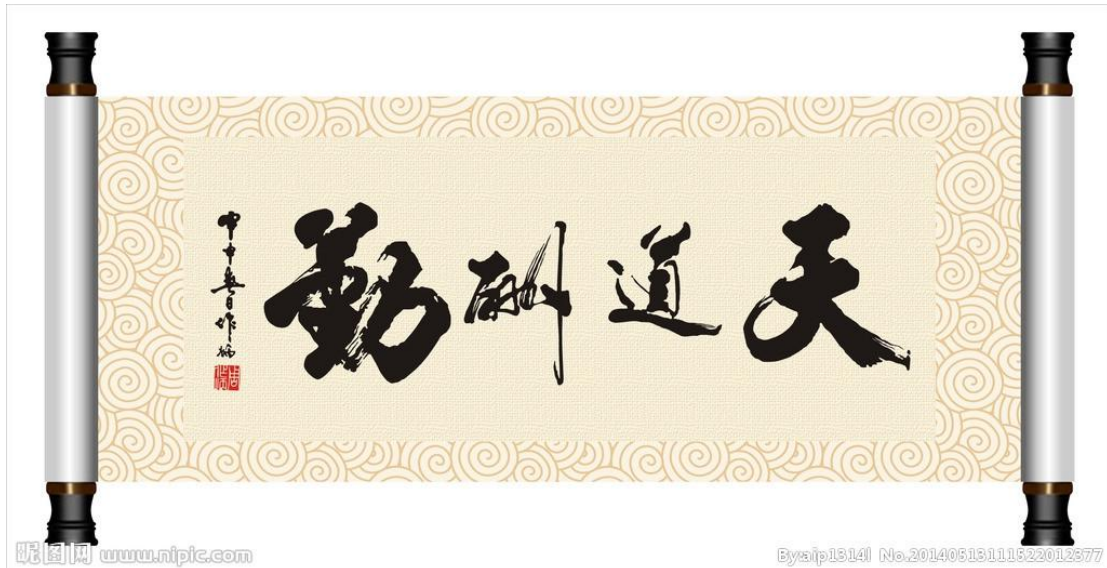 天道酬勤
甲申春日作炳
昵图网 www.nipic.com
By:aip1314l No.20140513111522012377